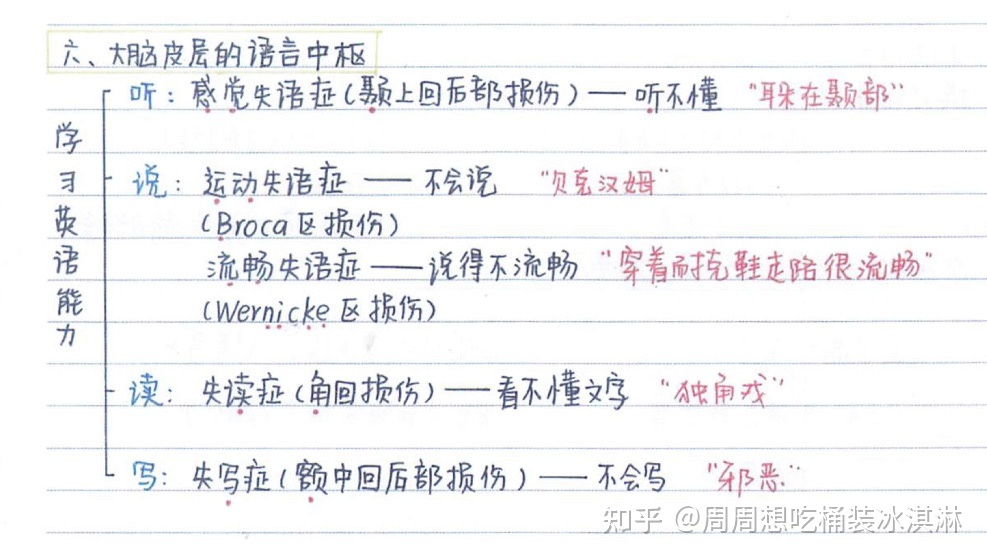 六、大脑皮层的语言中枢
学习英语能力
听：感觉失语症(颞上回后部损伤)——听不懂 "耳朵在颞部"
说：运动失语症 —— 不会说 "贝克汉姆"
(Broca区损伤)
流畅失语症——说得不流畅 "穿着耐克鞋走路很流畅"
(Wernicke区损伤)
读：失读症(角回损伤)——看不懂文字 "独角戏"
写：失写症(额中回后部损伤)——不会写 "邪恶"
知乎 @周周想吃桶装冰淇淋